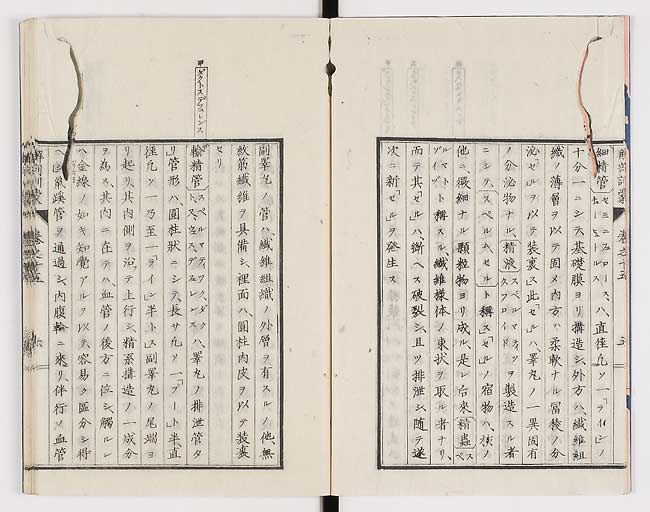 細精管 セミニフェロース、チューブルス ハ、直径凡ソ一「ライン」ノ
十分一ニシテ、基礎膜ヨリ構造シ、外方ハ、纎維組
織ノ薄層ヲ以テ固メ、内方ハ、柔軟ナル
泌「セル」ヲ以テ装裹ス、此「セル」ハ、睾丸ノ一異固有
ノ分泌物ナル、精液 スペルマティックフロイド ヲ製造スル者
ニシテ、スペルム、セルト稱ス、「セル」ノ宿物ハ、核ノ
他ニ微細ナル顆粒物ヨリ成ル、是レ后來、精蟲 スペルマトゾイヅ
ト稱スル纎維様体ノ束状ヲ取ル者ナリ、
而テ其「セル」ハ、斷ヘス破裂シ、且ツ排泄シ、随テ遂
次ニ新「セル」ヲ発生ス
副睾丸ノ管ハ、纎維組織ノ外層ヲ有スルノ他、無
紋筋纎維ヲ具備シ、裡面ハ、圓柱内皮ヲ以テ装裹
セリ
甲 ダクトス デフェレンス
輸精管 ハ、睾丸ノ排泄管タ
リ、管形ハ圓柱状ニシテ、長サ凡ソ一「フート」半、直
徑凡ソ一乃至一「ライン」半トス、副睾丸ノ尾端ヨ
リ起リ、其内側ヲ沿テ上行シ、精系搆造ノ一成分
ヲ為ス、其内ニ在テハ、血管ノ後方ニ位シ、觸ルレ
ハ金線ノ如キ知覚アルヲ以テ、容易ク區分シ得
ヘシ、鼠蹊管ヲ通過シ、内腹輪ニ來リ、伴行ノ血管
解剖訓蒙
巻之十五